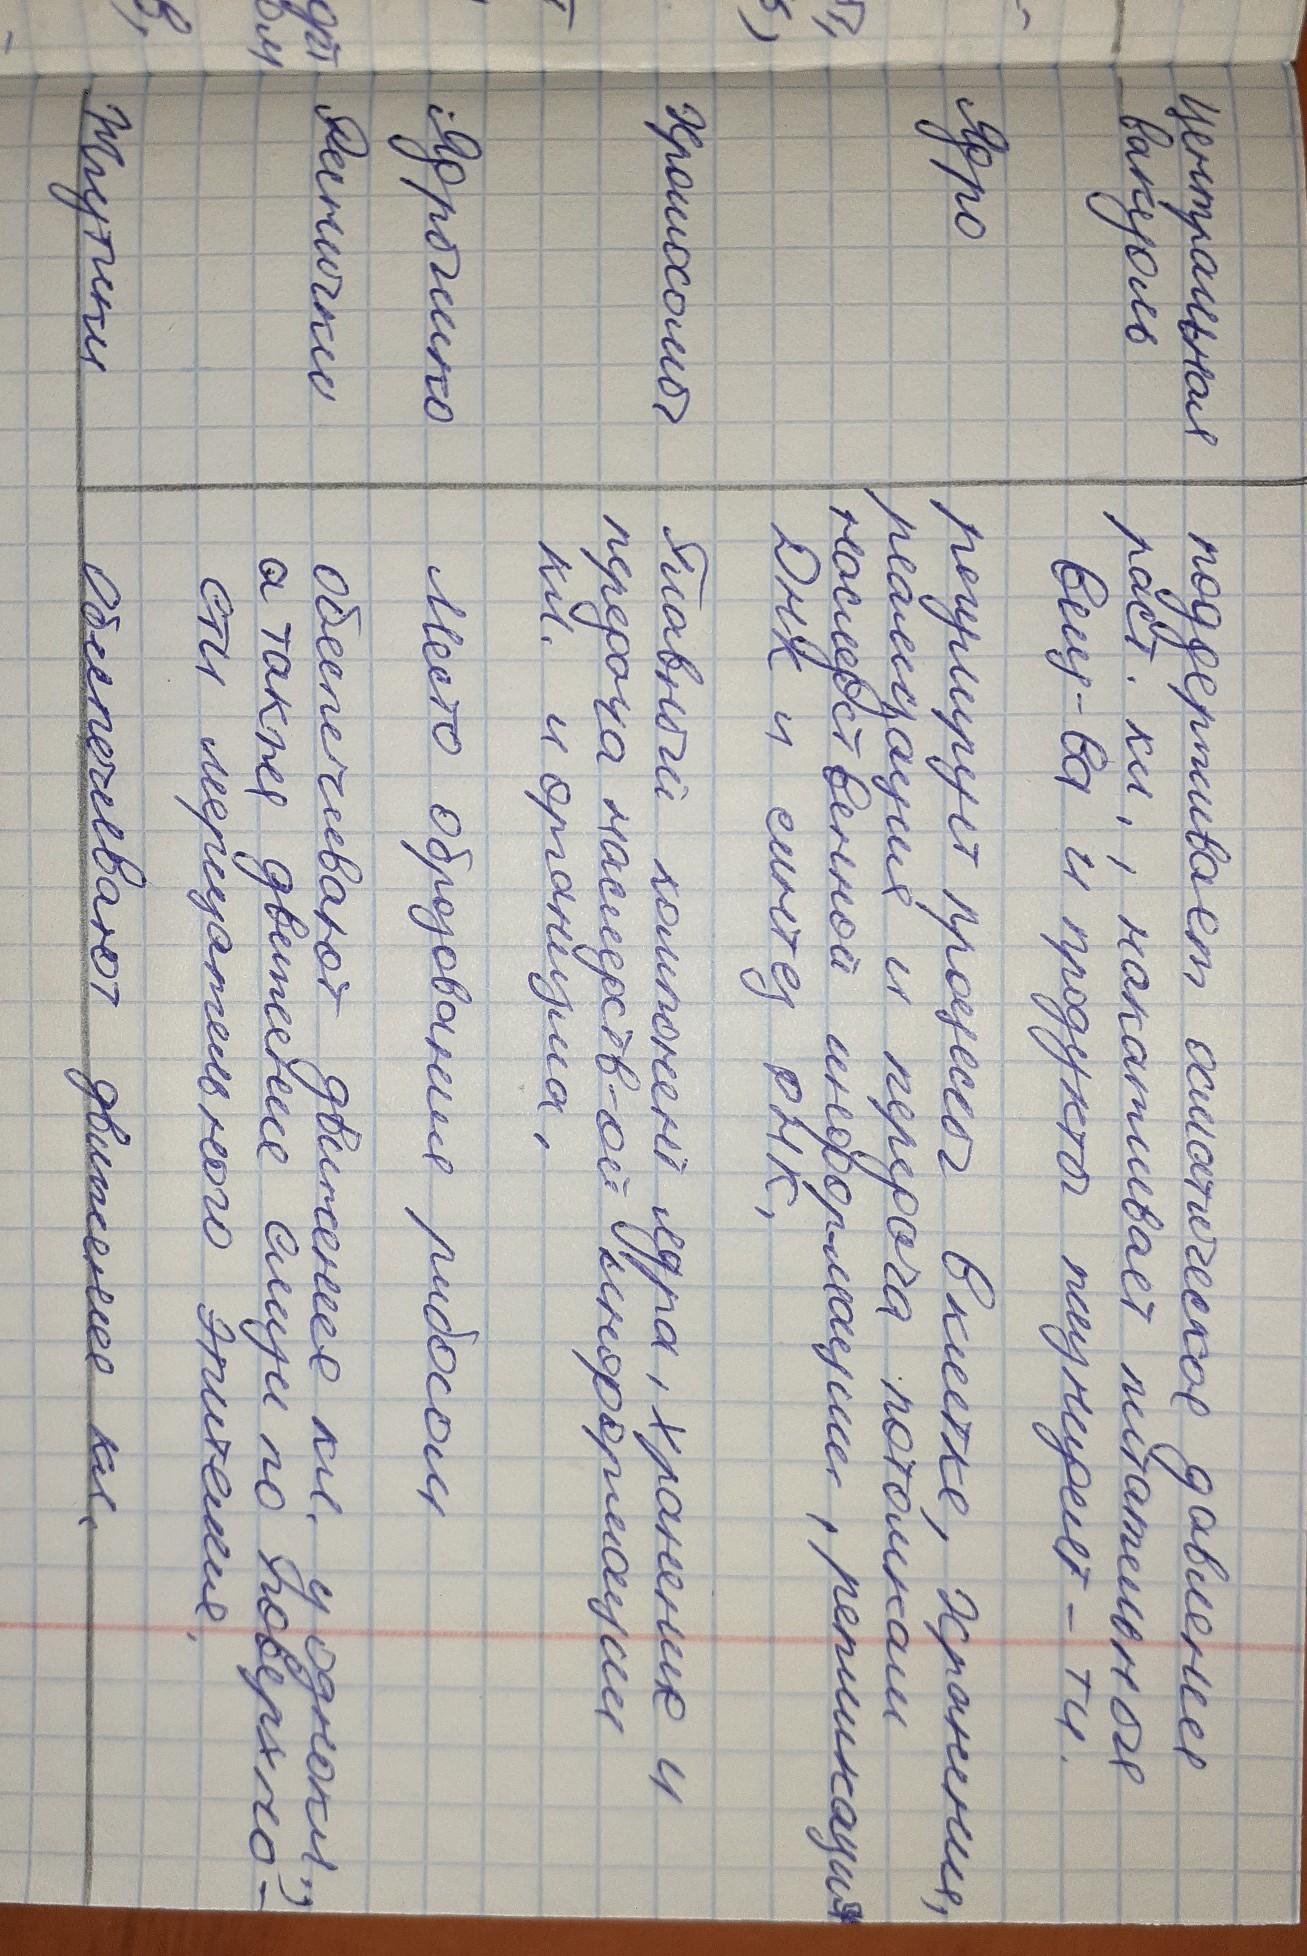 Центральная
вакуоль
поддерживает осматическое давление
раст. кл., накапливает питательные
вещ-ва и продукты
Ядро
регулирует процессы в клетке, хранения,
реализация и передача потомкам
наследственной информации, репликация
ДНК и синтез РНК,
Хромосомы
Главный компонент ядра, хранение и
передача наследств-ой информации
кл. и организма,
Ядрышко
Место образование рибосом
Реснички
Обеспечивают движение кл. у однокл.,
а также движение слизи по поверхно-
сти мерцательного эпителия.
Жгутики
Обеспечевают движение кл.